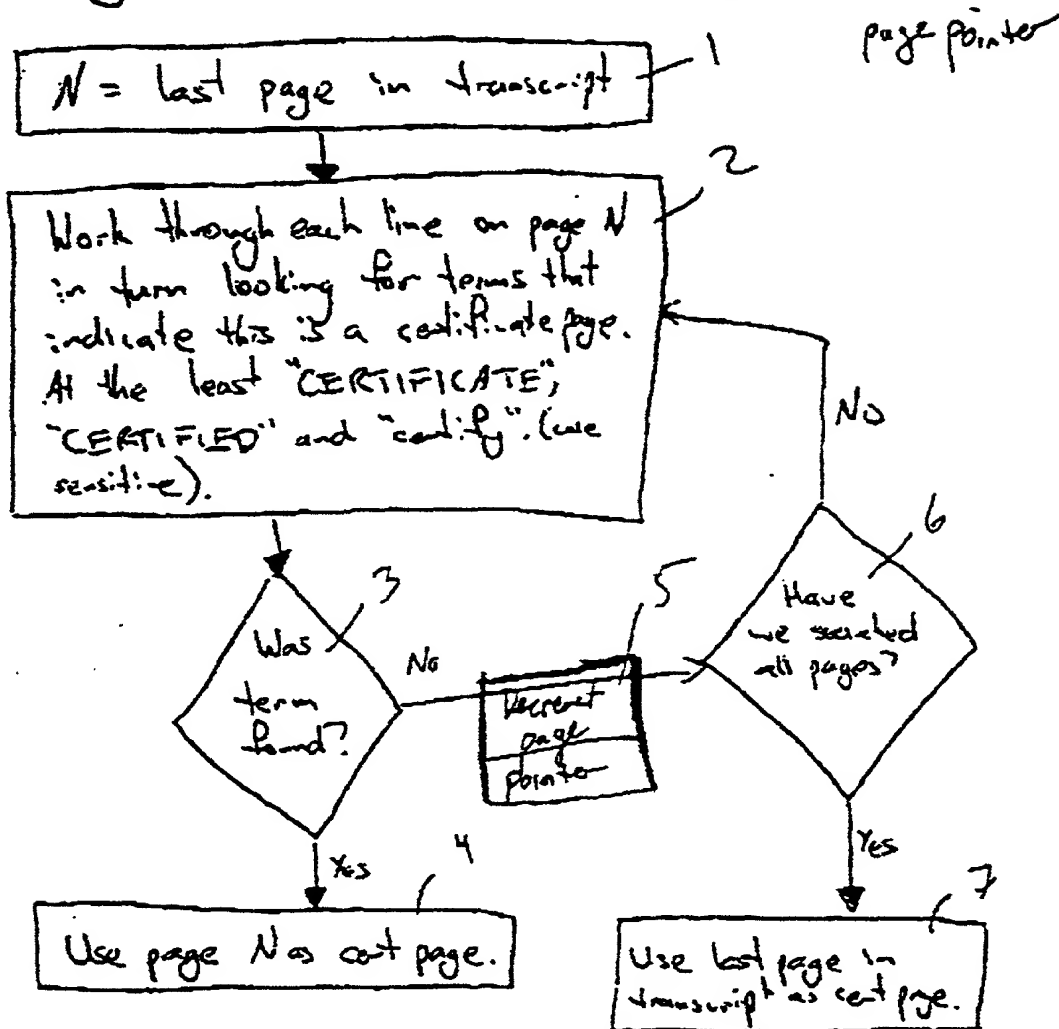 page pointer
N = last page in transcript
1
2
Work through each line on page N
in turn looking for terms that
indicate this is a certificate page.
At the least "CERTIFICATE",
"CERTIFIED" and "certify". (case
sensitive).
No
6
Have
we searched
all pages?
3
Was
term
found?
No
5
Decrement
page
pointer
Yes
4
Use page N as cert page.
Yes
7
Use last page in
transcript as cert page.